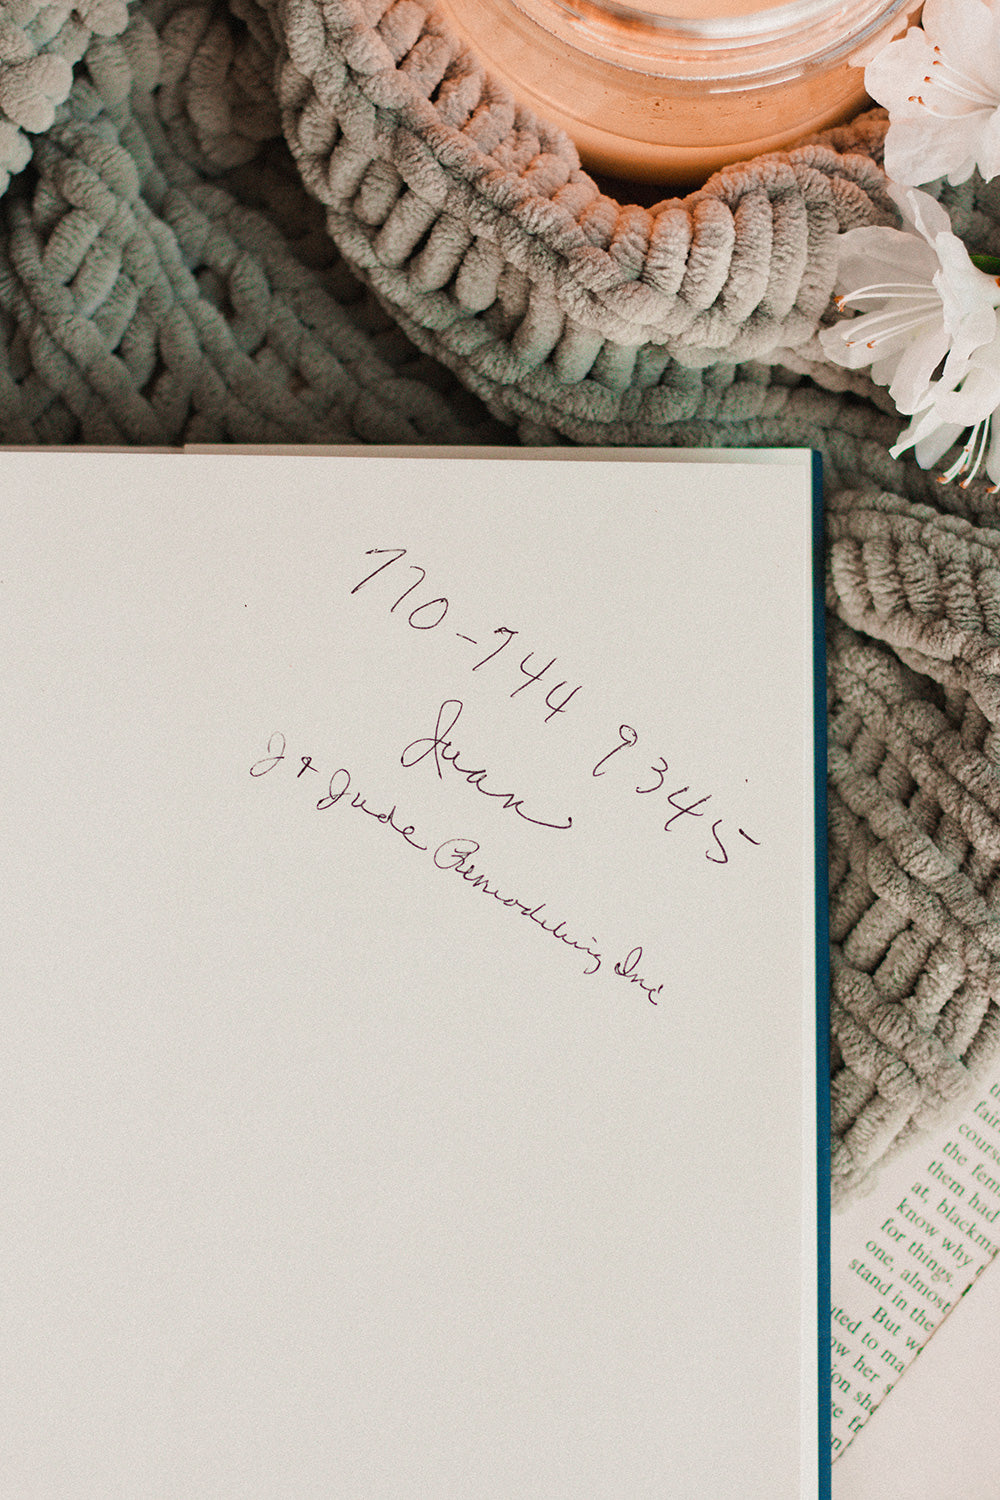 770-744 9345
Juan
J & Jude Remodeling Inc
fair
cours
the fem
them had
at, blackma
know why t
for things.
one, almost
stand in the
But w
uted to ma
ow her s
ion she
re fr
n